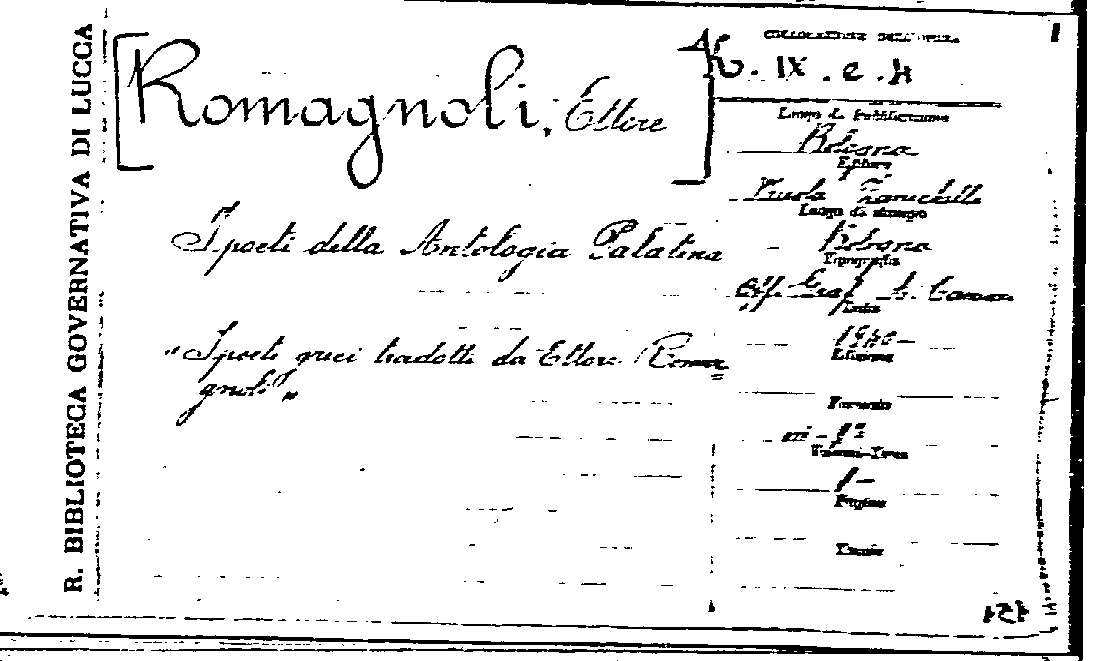 R. BIBLIOTECA GOVERNATIVA DI LUCCA
[Romagnoli, Ettore]
I poeti della Antologia Palatina
"I poeti greci tradotti da Ettore Roma=
gnoli"
COLLOCAZIONE DELL'OPERA
K. IX. e. 4
Luogo di Pubblicazione
Bologna
Editore
Nicola Zanichelli
Luogo di stampa
Bologna
Tipografia
Off. Graf.
1940-
Edizione
Formato
in-8º
1-
Pagine
151